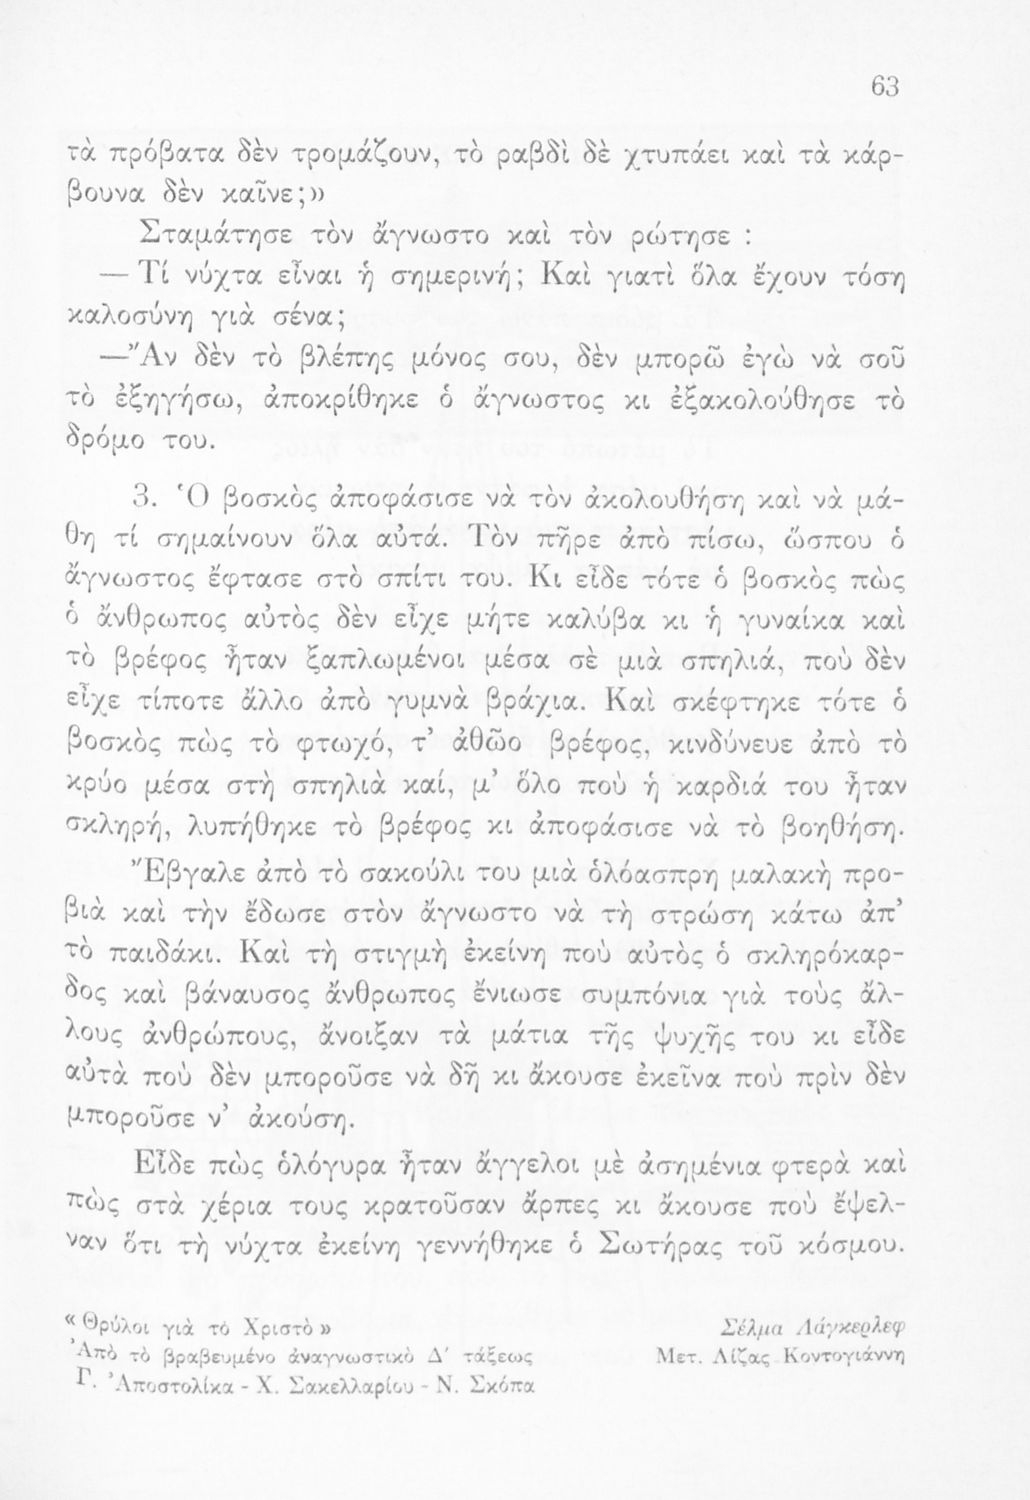 63
τὰ πρόβατα δὲν τρομάζουν, τὸ ραβδὶ δὲ χτυπάει καὶ τὰ κάρ-
βουνα δὲν καῖνε;»
Σταμάτησε τὸν ἄγνωστο καὶ τὸν ρώτησε :
— Τί νύχτα εἶναι ἡ σημερινή; Καὶ γιατὶ ὅλα ἔχουν τόση
καλοσύνη γιὰ σένα;
—Ἂν δὲν τὸ βλέπης μόνος σου, δὲν μπορῶ ἐγὼ νὰ σοῦ
τὸ ἐξηγήσω, ἀποκρίθηκε ὁ ἄγνωστος κι ἐξακολούθησε τὸ
δρόμο του.
3. Ὁ βοσκὸς ἀποφάσισε νὰ τὸν ἀκολουθήση καὶ νὰ μά-
θη τί σημαίνουν ὅλα αὐτά. Τὸν πῆρε ἀπὸ πίσω, ὥσπου ὁ
ἄγνωστος ἔφτασε στὸ σπίτι του. Κι εἶδε τότε ὁ βοσκὸς πὼς
ὁ ἄνθρωπος αὐτὸς δὲν εἶχε μήτε καλύβα κι ἡ γυναίκα καὶ
τὸ βρέφος ἦταν ξαπλωμένοι μέσα σὲ μιὰ σπηλιά, ποὺ δὲν
εἶχε τίποτε ἄλλο ἀπὸ γυμνὰ βράχια. Καὶ σκέφτηκε τότε ὁ
βοσκὸς πὼς τὸ φτωχό, τ’ ἀθῶο βρέφος, κινδύνευε ἀπὸ τὸ
κρύο μέσα στὴ σπηλιὰ καί, μ’ ὅλο ποὺ ἡ καρδιά του ἦταν
σκληρή, λυπήθηκε τὸ βρέφος κι ἀποφάσισε νὰ τὸ βοηθήση.
Ἔβγαλε ἀπὸ τὸ σακούλι του μιὰ ὁλόασπρη μαλακὴ προ-
βιὰ καὶ τὴν ἔδωσε στὸν ἄγνωστο νὰ τὴ στρώση κάτω ἀπ’
τὸ παιδάκι. Καὶ τὴ στιγμὴ ἐκείνη ποὺ αὐτὸς ὁ σκληρόκαρ-
δος καὶ βάναυσος ἄνθρωπος ἔνιωσε συμπόνια γιὰ τοὺς ἄλ-
λους ἀνθρώπους, ἄνοιξαν τὰ μάτια τῆς ψυχῆς του κι εἶδε
αὐτὰ ποὺ δὲν μποροῦσε νὰ δῆ κι ἄκουσε ἐκεῖνα ποὺ πρὶν δὲν
μποροῦσε ν’ ἀκούση.
Εἶδε πὼς ὁλόγυρα ἦταν ἄγγελοι μὲ ἀσημένια φτερὰ καὶ
πὼς στὰ χέρια τους κρατοῦσαν ἅρπες κι ἄκουσε ποὺ ἔψελ-
ναν ὅτι τὴ νύχτα ἐκείνη γεννήθηκε ὁ Σωτήρας τοῦ κόσμου.
«Θρύλοι γιὰ τὸ Χριστὸ» Σέλμα Λάγκερλεφ
Ἀπὸ τὸ βραβευμένο ἀναγνωστικὸ Δ΄ τάξεως Μετ. Λίζας Κοντογιάννη
Γ. Ἀποστολίκα - Χ. Σακελλαρίου - Ν. Σκόπα